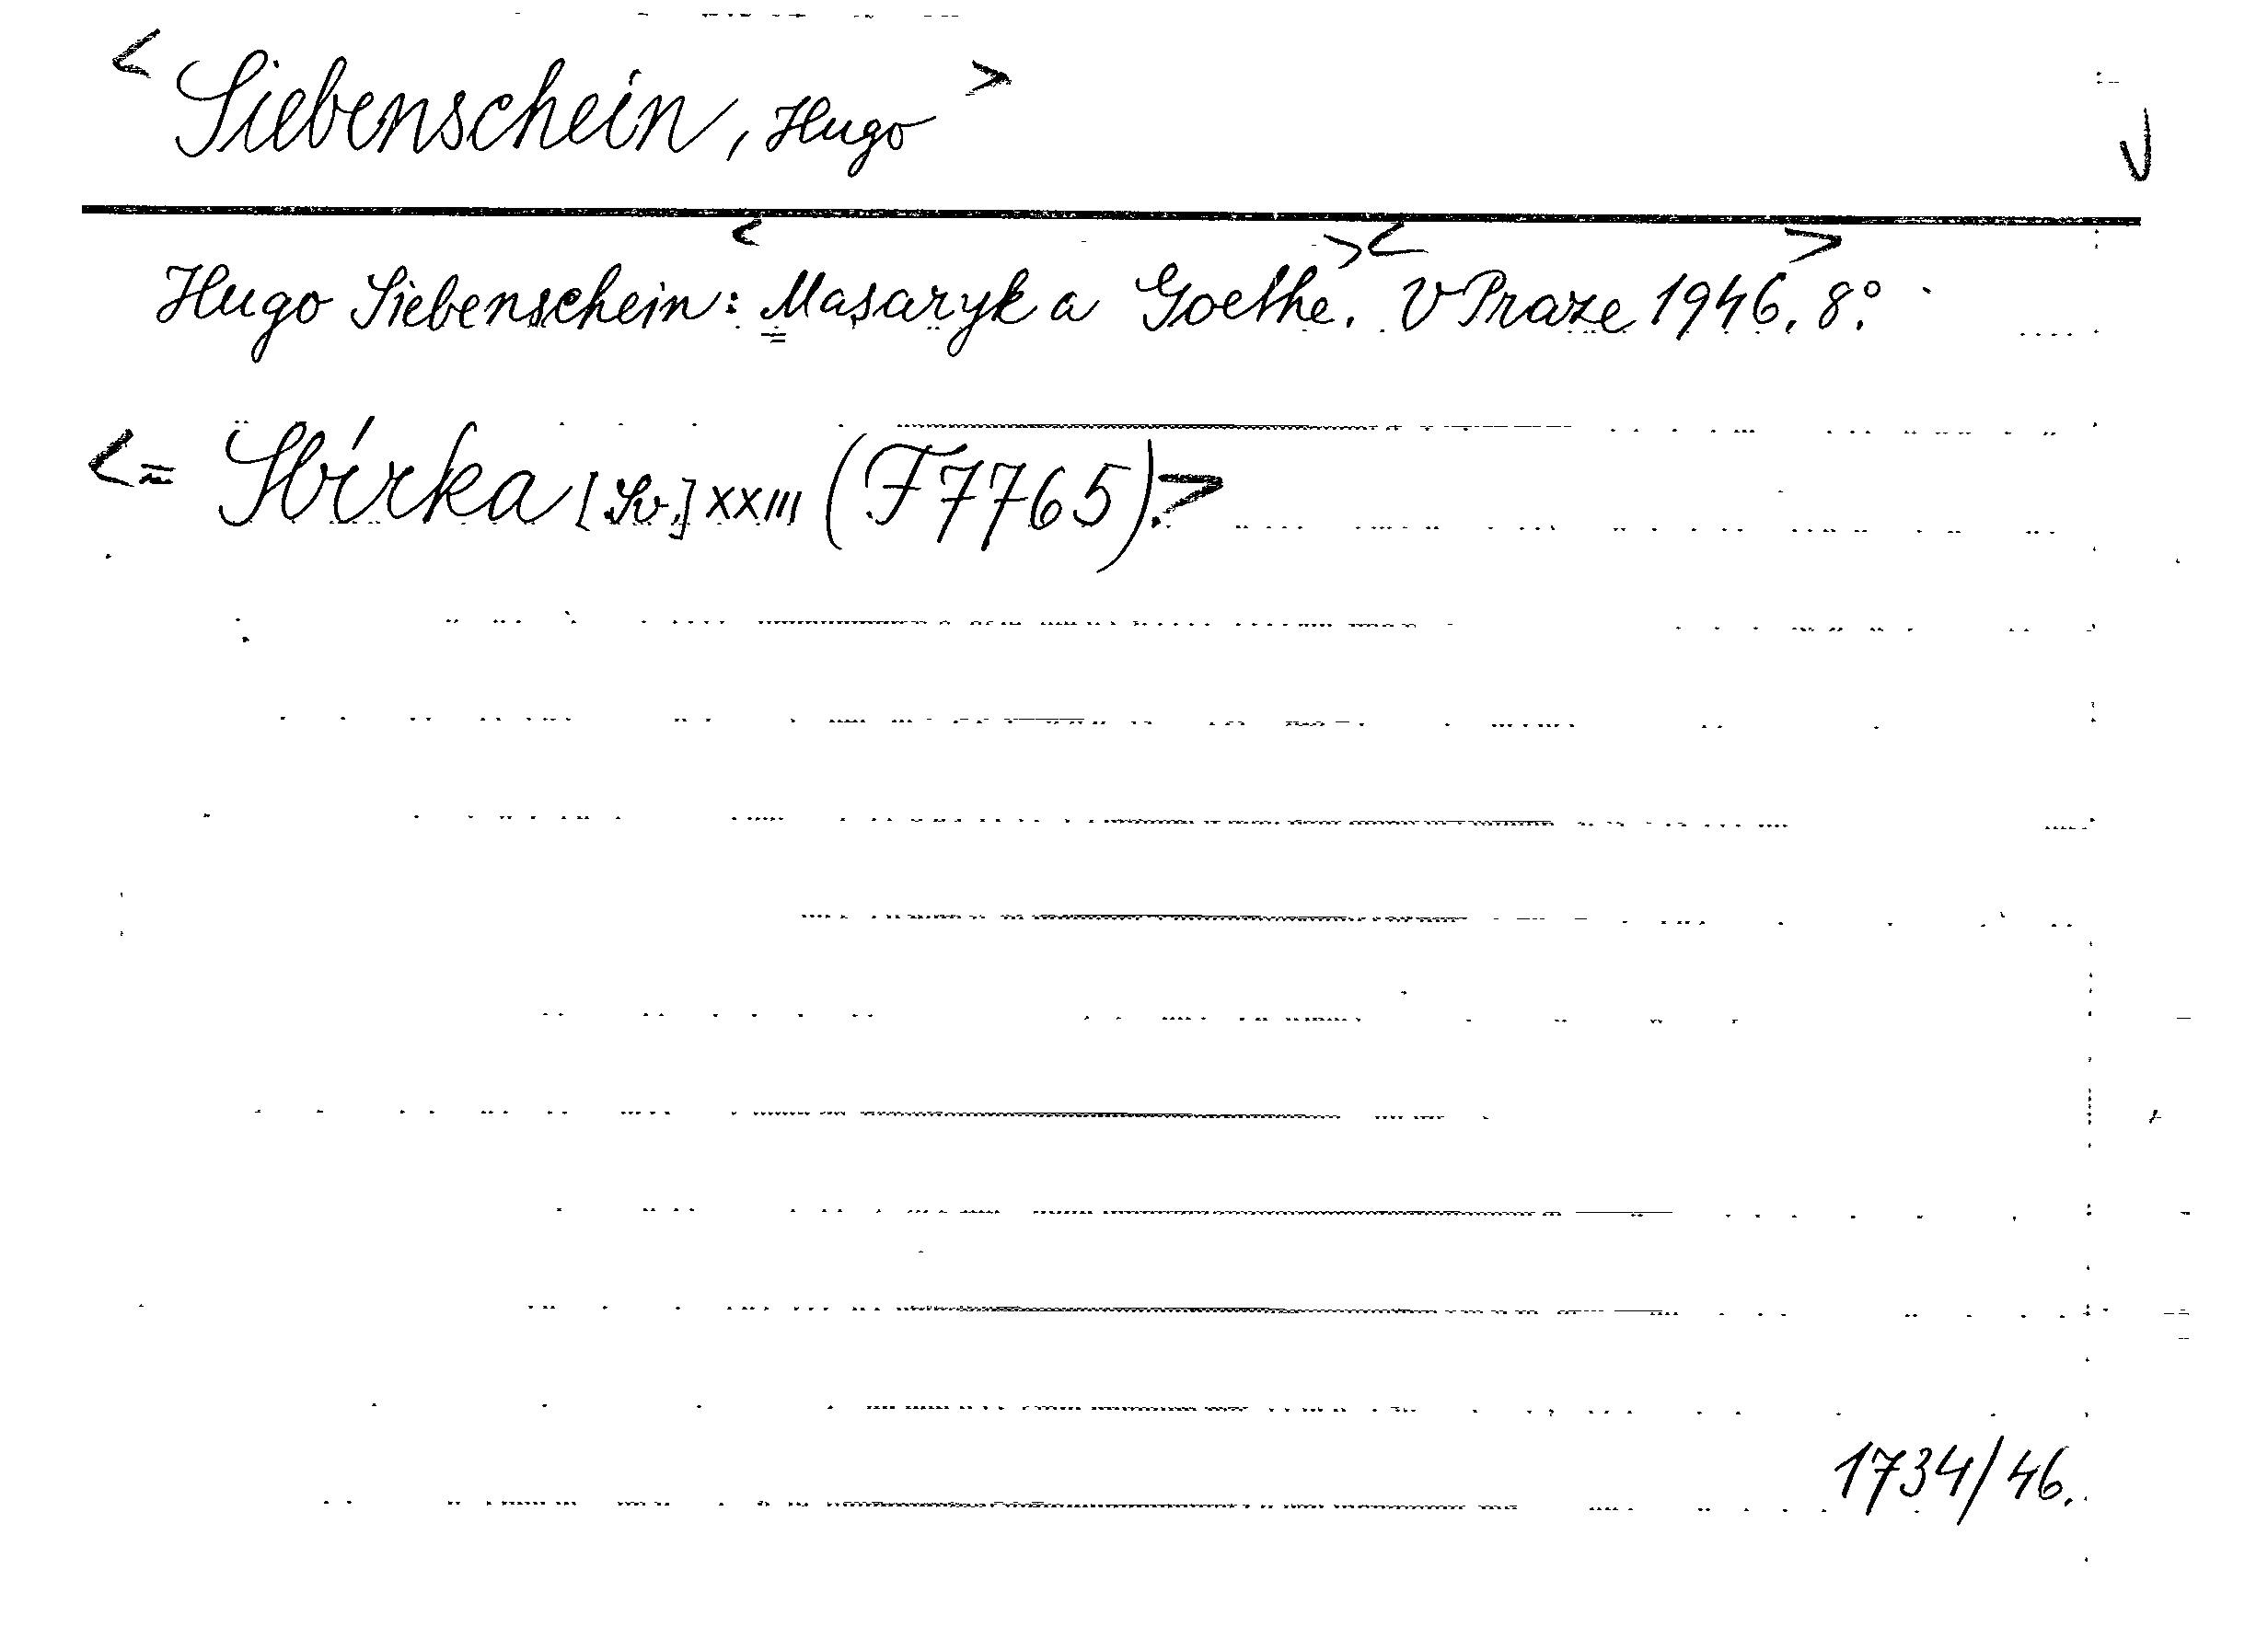 < Siebenschein, Hugo >
Hugo Siebenschein: <Masaryk a Goethe.> <V Praze 1946.> 8°.
<= Sbírka [Sv.] XXIII (F 7765).>
1734/46.